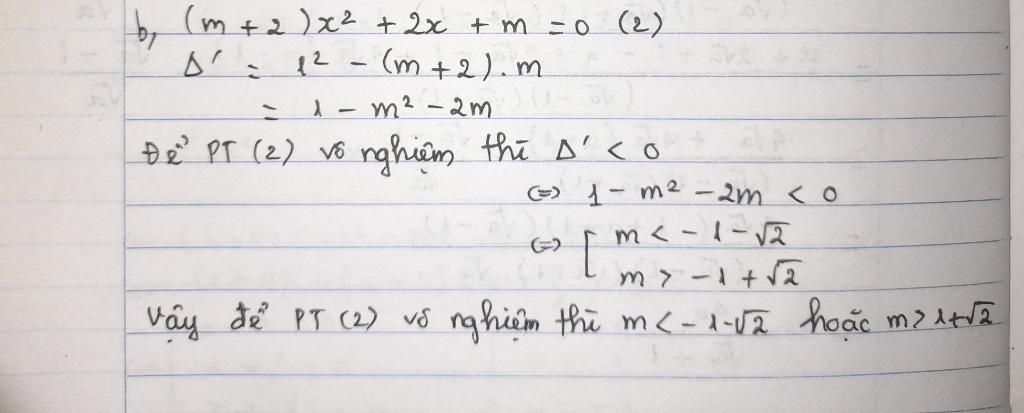 b, (m + 2)x² + 2x + m = 0 (2)
Δ' = 1² - (m + 2). m
= 1 - m² - 2m
Để PT (2) vô nghiệm thì Δ' < 0
<=> 1 - m² - 2m < 0
<=> [ m < -1 - √2
m > -1 + √2
Vậy để PT (2) vô nghiệm thì m < -1 - √2 hoặc m > 1 + √2